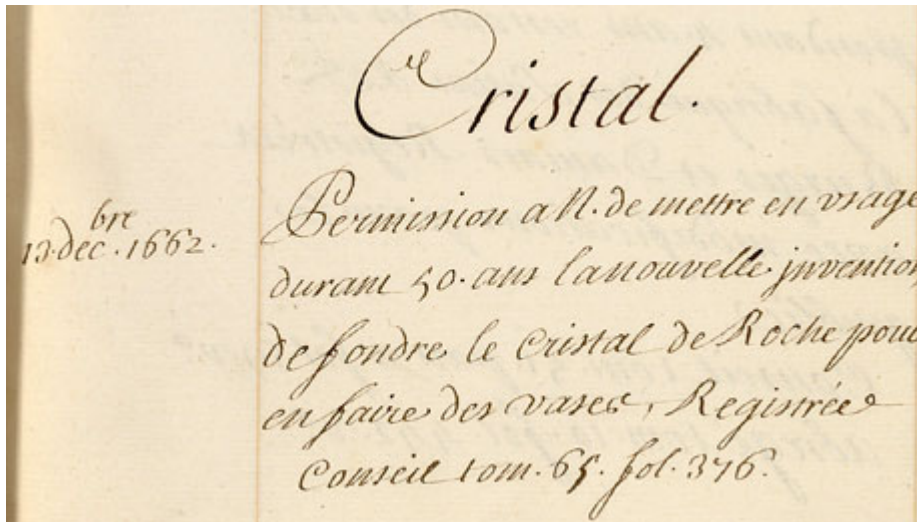 Cristal.
13. dec.bre 1662.
Permission a N. de mettre en vsage
durant 50. ans la nouvelle jnvention
de fondre le Cristal de Roche pour
en faire des vases, Registrée
Conseil tom. 65. fol. 376.